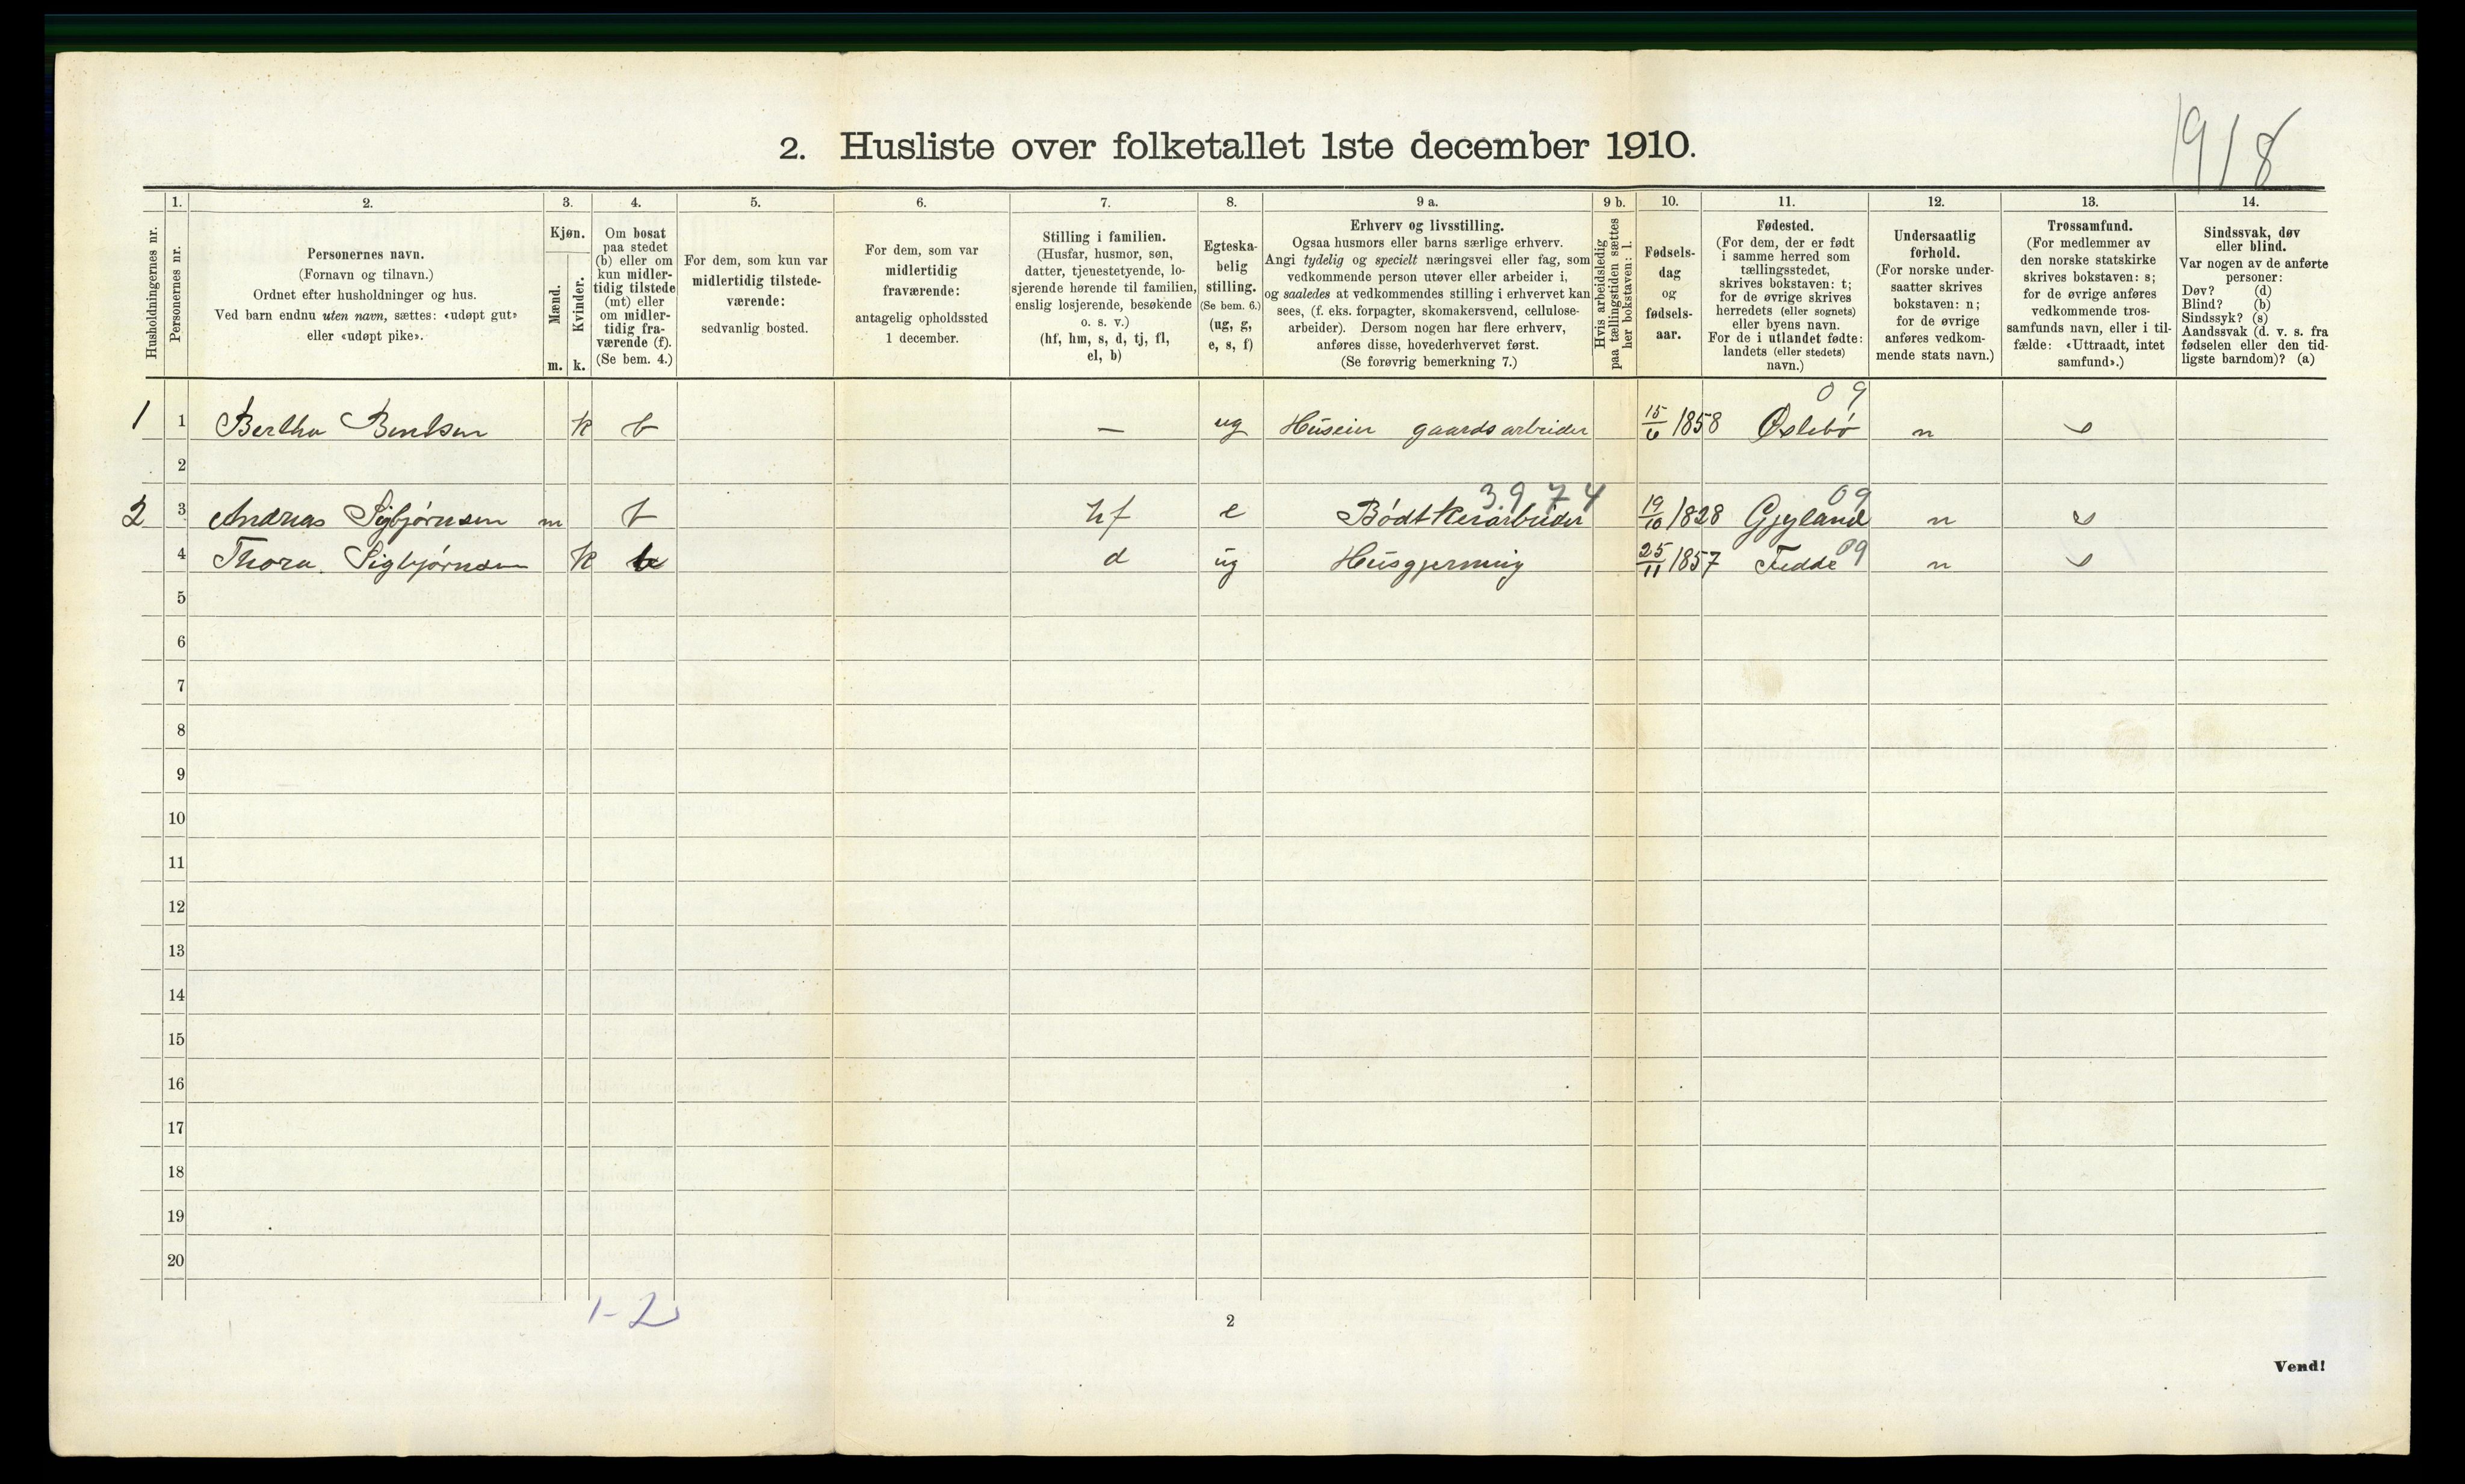 1918
2. Husliste over folketallet 1ste december 1910.
1. 2. 3. 4. 5. 6. 7. 8. 9 a. 9 b. 10. 11. 12. 13. 14.
Husholdningernes nr.
Personernes nr.
Personernes navn.
(Fornavn og tilnavn.)
Ordnet efter husholdninger og hus.
Ved barn endnu uten navn, sættes: «udøpt gut»
eller «udøpt pike».
Kjøn.
Mænd.
Kvinder.
m. k.
Om bosat
paa stedet
(b) eller om
kun midler-
tidig tilstede
(mt) eller
om midler-
tidig fra-
værende (f).
(Se bem. 4.)
For dem, som kun var
midlertidig tilstede-
værende:
sedvanlig bosted.
For dem, som var
midlertidig
fraværende:
antagelig opholdssted
1 december.
Stilling i familien.
(Husfar, husmor, søn,
datter, tjenestetyende, lo-
sjerende hørende til familien,
enslig losjerende, besøkende
o. s. v.)
(hf, hm, s, d, tj, fl,
el, b)
Egteska-
belig
stilling.
(Se bem. 6.)
(ug, g,
e, s, f)
Erhverv og livsstilling.
Ogsaa husmors eller barns særlige erhverv.
Angi tydelig og specielt næringsvei eller fag, som
vedkommende person utøver eller arbeider i,
og saaledes at vedkommendes stilling i erhvervet kan
sees, (f. eks. forpagter, skomakersvend, cellulose-
arbeider). Dersom nogen har flere erhverv,
anføres disse, hovederhvervet først.
(Se forøvrig bemerkning 7.)
Hvis arbeidsledig
paa tællingstiden sættes
her bokstaven: l.
Fødsels-
dag
og
fødsels-
aar.
Fødested.
(For dem, der er født
i samme herred som
tællingsstedet,
skrives bokstaven: t;
for de øvrige skrives
herredets (eller sognets)
eller byens navn.
For de i utlandet fødte:
landets (eller stedets)
navn.)
Undersaatlig
forhold.
(For norske under-
saatter skrives
bokstaven: n;
for de øvrige
anføres vedkom-
mende stats navn.)
Trossamfund.
(For medlemmer av
den norske statskirke
skrives bokstaven: s;
for de øvrige anføres
vedkommende tros-
samfunds navn, eller i til-
fælde: «Uttraadt, intet
samfund».)
Sindssvak, døv
eller blind.
Var nogen av de anførte
personer:
Døv? (d)
Blind? (b)
Sindssyk? (s)
Aandssvak (d. v. s. fra
fødselen eller den tid-
ligste barndom)? (a)
09
1 1 Bertha Bentsen k b — ug Huseier gaardsarbeider 15/6 1858 Øslebø n s
2
3974 09
2 3 Andreas Sigbjørnsen m b hf e Bødtkerarbeider 19/10 1828 Gyland n s
4 Thora Sigbjørnsen k b d ug Husgjerning 25/11 1857 Fedde 09 n s
5
6
7
8
9
10
11
12
13
14
15
16
17
18
19
20
1-2
2
Vend!